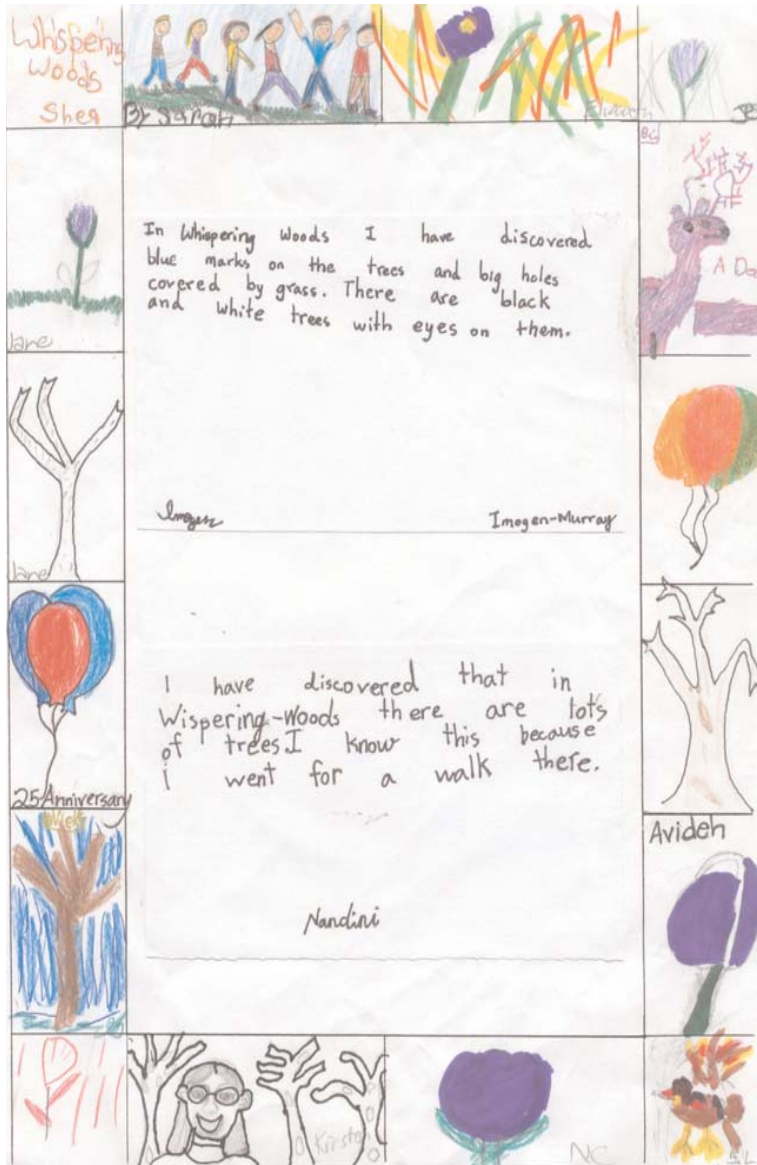 Whispering
Woods
Shea
By Sarah
BG
A
Jane
In Whispering Woods I have discovered
blue marks on the trees and big holes
covered by grass. There are black
and white trees with eyes on them.
Jane
Imogen
Imogen-Murray
25 Anniversary
I have discovered that in
Wispering-Woods there are lots
of trees.I know this because
i went for a walk there.
Nandini
Avideh
Kirsten
NC